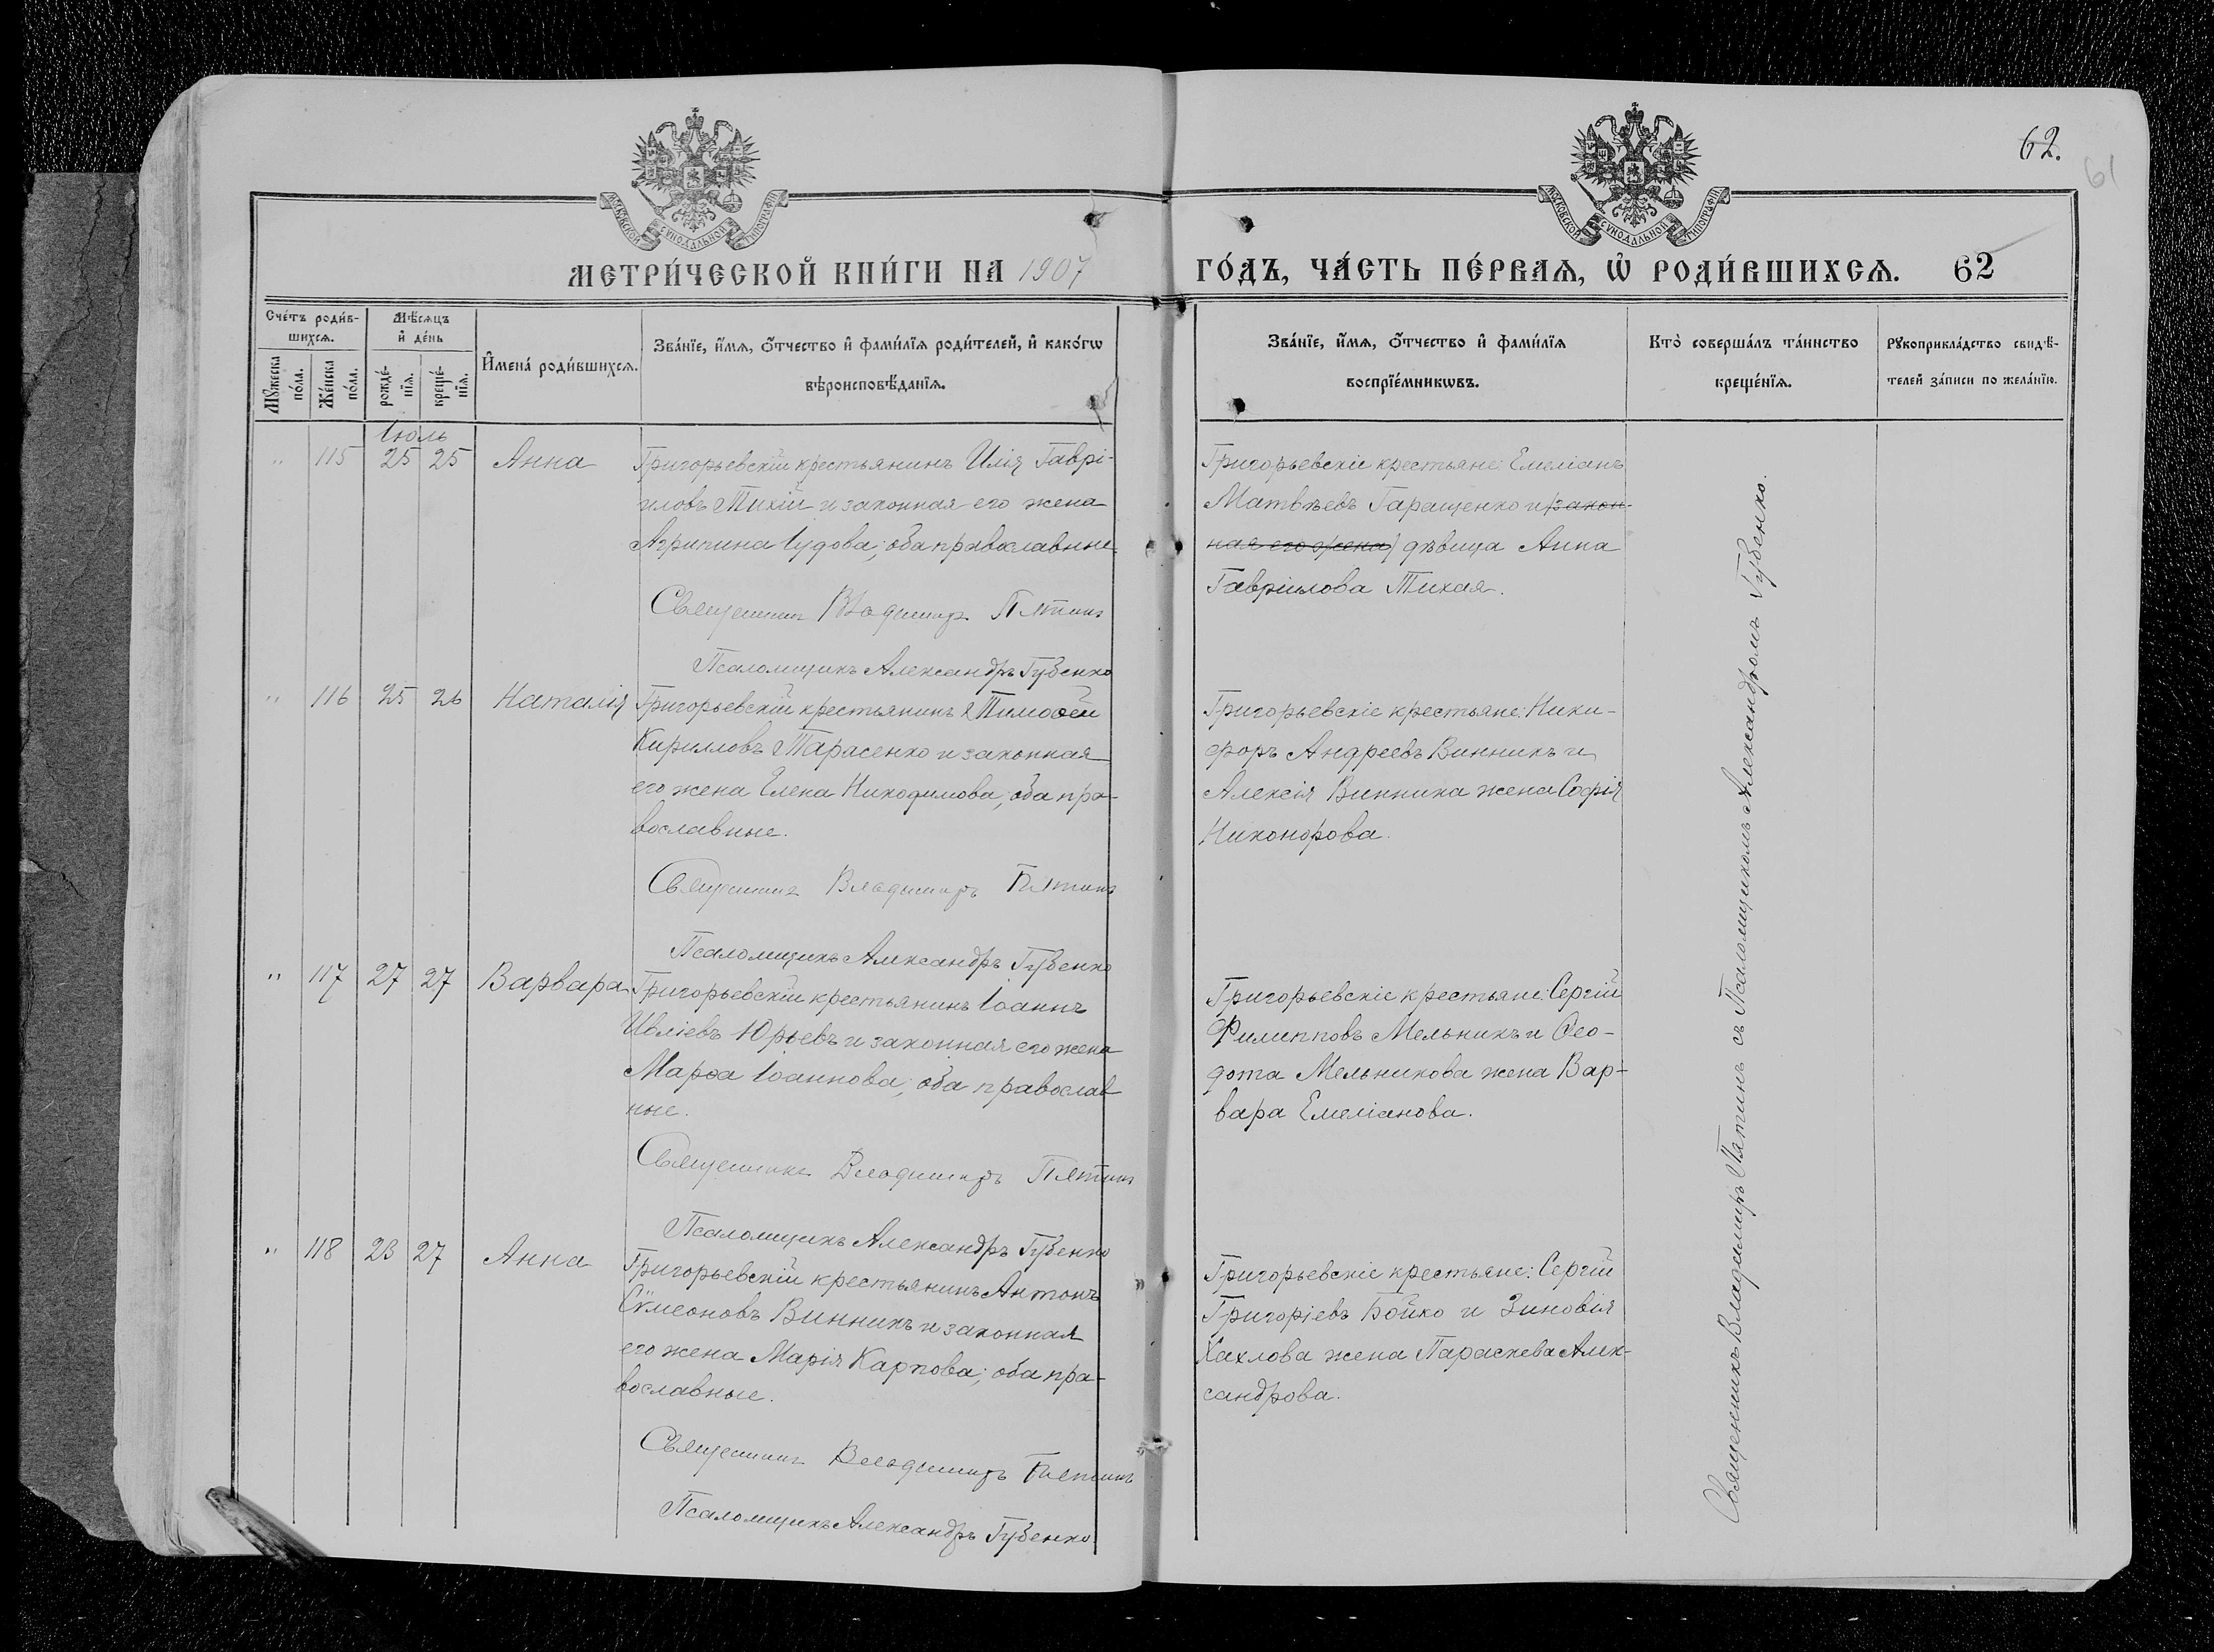 62.
61
МОСКОВСКОЙ СѴНОДАЛЬНОЙ ТИПОГРАФІИ
МОСКОВСКОЙ СѴНОДАЛЬНОЙ ТИПОГРАФІИ
МЕТРИ́ЧЕСКОЙ КНИ́ГИ НА 1907
ГО́ДЪ, ЧА́СТЬ ПЕ́РВАѦ, Ѡ҆ РОДИ́ВШИХСѦ. 62
Сче́тъ роди́в-
шихсѧ.
Мꙋ́жеска
по́ла.
Же́нска
по́ла.
Мѣ́сѧцъ
и҆ де́нь
рожде́-
нїѧ.
креще́-
нїѧ.
И҆мена̀ роди́вшихсѧ.
Зва́нїе, и҆́мѧ, ѻ҆́тчество и҆ фами́лїѧ роди́телей, и҆ како́гѡ
вѣроисповѣ́данїѧ.
Зва́нїе, и҆́мѧ, ѻ҆́тчество и҆ фами́лїѧ
воспрїе́мникѡвъ.
Кто̀ соверша́лъ та́инство
креще́нїѧ.
Рꙋкоприкла́дство свидѣ́-
телей за́писи по жела́нїю.
Іюль
" 115 25 25 Анна
Григорьевскій крестьянинъ Илія Гаврі-
иловъ Тихій и законная его жена
Агрипина Іудова; оба православные.
Священникъ Владимиръ Пятинъ
Псаломщикъ Александръ Губенко
Григорьевскіе крестьяне: Емеліанъ
Матвѣевъ Гаращенко и (закон-
ная его жена) дѣвица Анна
Гавріилова Тихая.
" 116 25 26 Наталія
Григорьевскій крестьянинъ Тимоѳей
Кирилловъ Тарасенко и законная
его жена Елена Никодимова; оба пра-
вославные.
Священникъ Владимиръ Пятинъ
Псаломщикъ Александръ Губенко
Григорьевскіе крестьяне: Ники-
форъ Андреевъ Винникъ и
Алексія Винника жена Софія
Никонорова.
" 117 27 27 Варвара
Григорьевскій крестьянинъ Іоаннъ
Ивліевъ Юрьевъ и законная его жена
Марѳа Іоаннова; оба православ
ные.
Священникъ Владимиръ Пятинъ
Псаломщикъ Александръ Губенко
Григорьевскіе крестьяне: Сергій
Филипповъ Мельникъ и Ѳео-
дота Мельникова жена Вар-
вара Емеліанова.
" 118 23 27 Анна
Григорьевскій крестьянинъ Антонъ
Сѵмеоновъ Винникъ и законная
его жена Марія Карпова; оба пра-
вославные.
Священникъ Владимиръ Пятинъ
Псаломщикъ Александръ Губенко
Григорьевскіе крестьяне: Сергій
Григоріевъ Бойко и Зиновія
Хахлова жена Параскева Алек-
сандрова.
Священникъ Владимиръ Пятинъ съ Псаломщикомъ Александромъ Губенко.